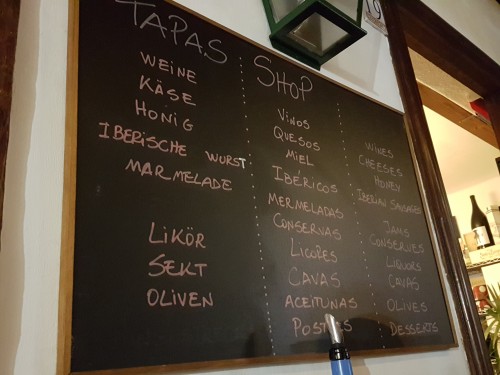 TAPAS SHOP
WEINE
KÄSE
HONIG
IBERISCHE WURST
MARMELADE
LIKÖR
SEKT
OLIVEN
VINOS
QUESOS
MIEL
IBÉRICOS
MERMELADAS
CONSERVAS
LICORES
CAVAS
ACEITUNAS
WINES
CHEESES
HONEY
IBERIAN SAUSAGES
JAMS
CONSERVES
LIQUORS
CAVAS
OLIVES
DESSERTS